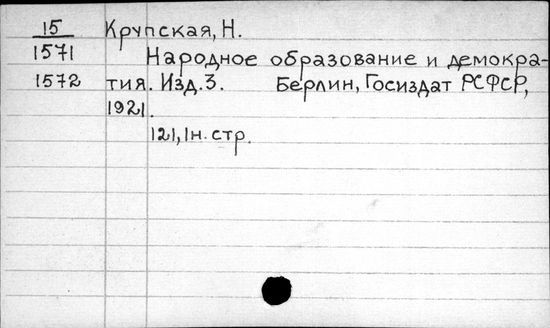 15 Крупская, Н.
1571 Народное образование и демокра-
1572 тия. Изд.3. Берлин, Госиздат РСФСР,
1921.
121, 1н. стр.